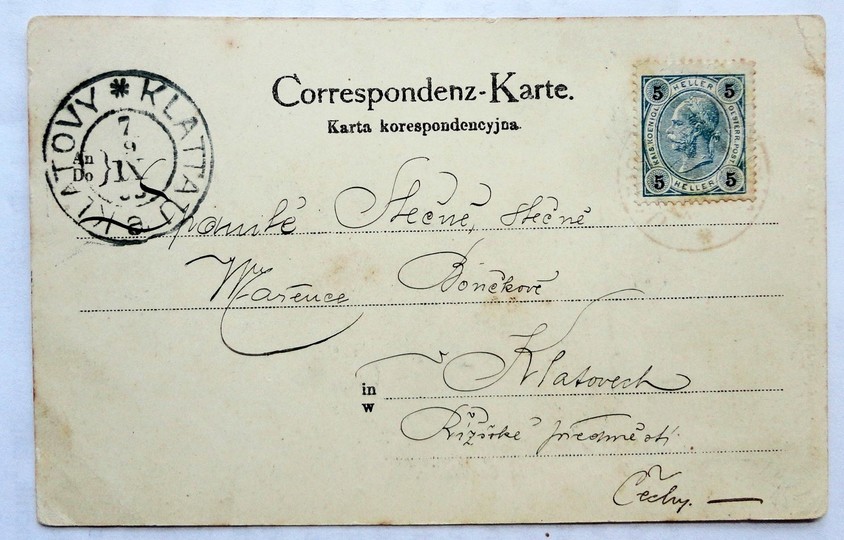 Correspondenz-Karte.
Karta korespondencyjna.
KLATOVY * KLATTAU
7
9
IX
An
Do
5 HELLER 5
KAIS.KOENIGL. OESTERR.POST.
5 HELLER 5
Slečně, slečně
Mařence Bončkové
v Klatovech
in
w
předměstí
Čechy.